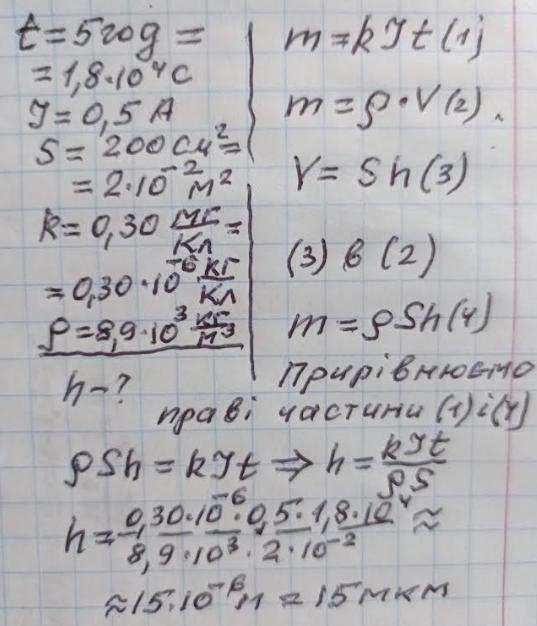 t = 5 год =
= 1,8·10⁴ с
I = 0,5 А
S = 200 см² =
= 2·10⁻² м²
k = 0,30 мг/Кл =
= 0,30·10⁻⁶ кг/Кл
ρ = 8,9·10³ кг/м³
h – ?
m = kIt (1)
m = ρ·V (2)
V = Sh (3)
(3) в (2)
m = ρSh (4)
Прирівнюємо
праві частини (1) і (4)
ρSh = kIt ⇒ h = kIt/ρS
h = 0,30·10⁻⁶·0,5·1,8·10⁴/8,9·10³·2·10⁻² ≈
≈ 15·10⁻⁶ м = 15 мкм